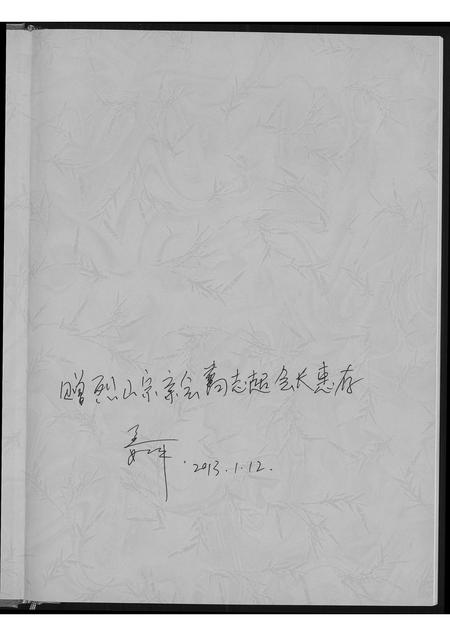 赠烈山宗亲会萬志超会长惠存
2013.1.12.